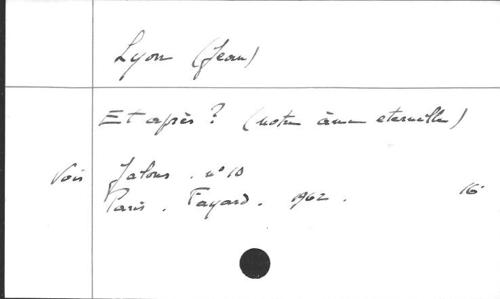 Lyon (Jean)
Et après ? (notre âme eternelle)
Voir Jalons . n° 10
Paris . Fayard . 1962 . 16